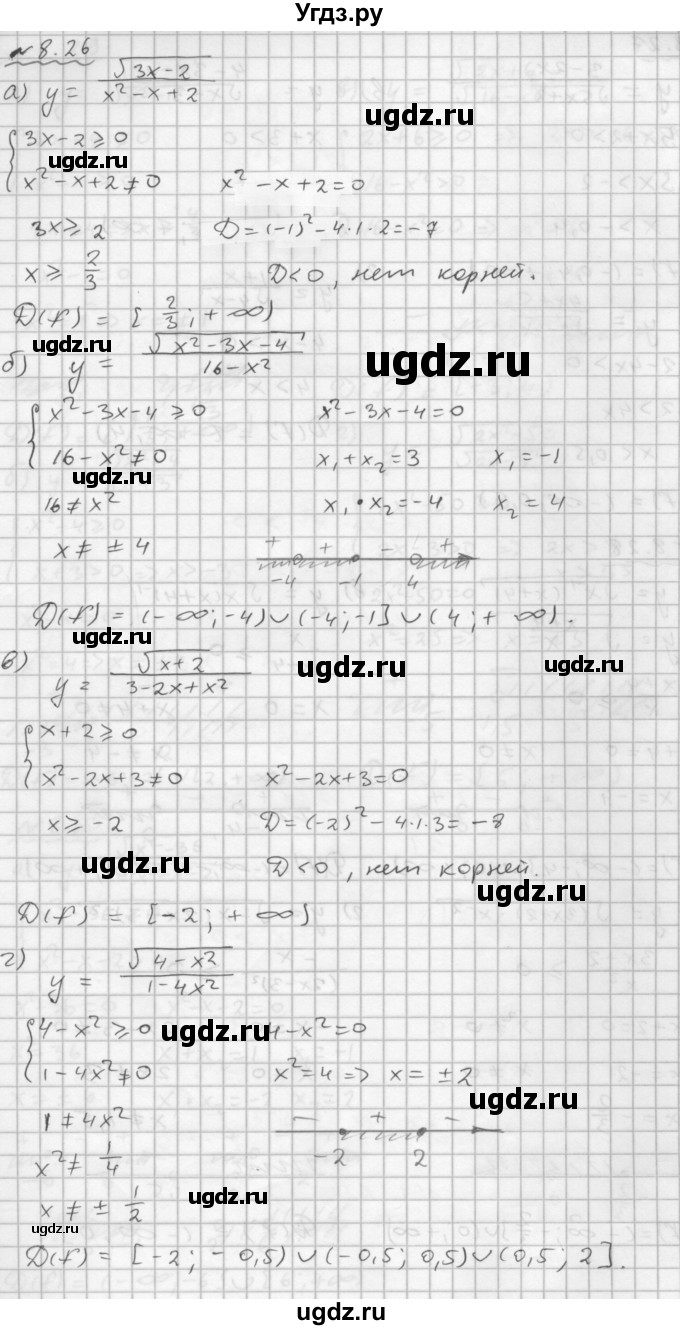 Угдз.ру
№ 8.26
а) y = √(3x-2) / (x² - x + 2)
ugdz.ru
{ 3x - 2 ≥ 0
ugdz.ru
x² - x + 2 ≠ 0    x² - x + 2 = 0
3x ≥ 2    D = (-1)² - 4·1·2 = -7
x ≥ 2/3    D < 0, нет корней.
D(f) = [2/3; +∞)
ugdz.ru
б) y = √(x² - 3x - 4) / (16 - x²)
ugdz.ru
{ x² - 3x - 4 ≥ 0    x² - 3x - 4 = 0
16 - x² ≠ 0    x₁ + x₂ = 3    x₁ = -1
ugdz.ru
16 ≠ x²    x₁ · x₂ = -4    x₂ = 4
x ≠ ± 4    + + - +
-4 -1 4
D(f) = (-∞; -4) ∪ (-4; -1] ∪ (4; +∞).
ugdz.ru
в) y = √(x+2) / (3 - 2x + x²)
ugdz.ru
ugdz.ru
{ x + 2 ≥ 0
x² - 2x + 3 ≠ 0    x² - 2x + 3 = 0
x ≥ -2    D = (-2)² - 4·1·3 = -8
ugdz.ru
D < 0, нет корней.
ugdz.ru
D(f) = [-2; +∞)
г) y = √(4 - x²) / (1 - 4x²)
{ 4 - x² ≥ 0    4 - x² = 0
ugdz.ru
1 - 4x² ≠ 0    x² = 4 => x = ± 2
ugdz.ru
1 ≠ 4x²    - + -
x² ≠ 1/4    -2 2
x ≠ ± 1/2
ugdz.ru
ugdz.ru
D(f) = [-2; -0,5) ∪ (-0,5; 0,5) ∪ (0,5; 2].
ugdz.ru